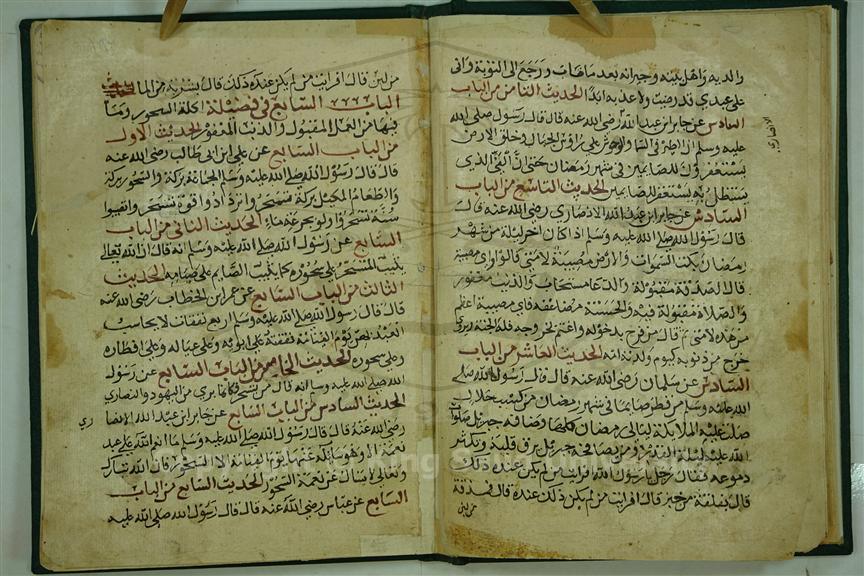 والديه واهل بيته وجيرانه بعد ما هات ورجع الى التوبة وانى
على عبدى قد رضيت ولا عذبه ابدا الحديث الثامن من الباب
السادس عن جابر ابن عبد الله رضى الله عنه قال قال رسول الله صلى الله
الانصارى
عليه وسلم ان الطير فى السماء والوحش على رؤس الجبال وخلق الارض
يستغفرون للصايمين فى شهر رمضان حتى ان الذى
يستظل به يستغفر للصايمين الحديث التاسع من الباب
السادس عن جابر ابن عبد الله الانصارى رضى الله عنه قال
قال رسول الله صلى الله عليه وسلم اذا كان اخر ليلة من شهر
رمضان بكت السموات والارض مصيبة لامتى قالوا واى مصيبة
قال الصدقة مقبولة والدعا مستجاب والذنب مغفور
والصلاة مقبولة فيه والحسنة مضاعفه فاى مصيبة اعظم
من هذه لامتى ثم قال من فرح بدخوله واغتم بخروجه فله الجنة
خرج من ذنوبه كيوم ولدته امه الحديث العاشر من الباب
السادس عن سلمان رضى الله عنه قال قال رسول الله صلى
الله عليه وسلم من فطر صايما فى شهر رمضان من كسب حلال
صلت عليه الملايكة ليالى رمضان كلها وصافحه جبريل صلوات
الله عليه ليلة القدر ومن صافحه جبريل يرق قلبه وتكثر
دموعه فقال رجل يا رسول الله افرايت من لم يكن عنده ذلك
قال بفلقة من خبز قال افرايت من لم يكن ذلك عنده قال فمذقة
من لبن
من لبن قال افرايت من لم يكن عنده ذلك قال بشربة من الما
الباب السابع فى فضيلة اكلة السحور وما
فيها من العمل المقبول والذنب المغفور الحديث الاول
من الباب السابع عن على ابن ابى طالب رضى الله عنه
قال قال رسول الله صلى الله عليه وسلم الجماعة بركة والسحور بركة
والطعام المكيل بركة فتسحروا تزدادوا قوة تسحروا واصيبوا
سنة تسحروا ولو بجرعة ماء الحديث الثانى من الباب
السابع عن رسول الله صلى الله عليه وسلم انه قال ان الله تعالى
يثيب المتسحر على سحوره كما يثيب الصايم على صيامه الحديث
الثالث من الباب السابع عن عمر ابن الخطاب رضى الله عنه
قال قال رسول الله صلى الله عليه وسلم اربع نفقات لا يحاسب
العبد بهن يوم القيامه نفقته على ابويه وعلى عياله وعلى افطاره
وعلى سحوره الحديث الخامس من الباب السابع عن رسول
الله صلى الله عليه وسلم انه قال من تسحر فكانما برى من اليهود والنصارى
الحديث السادس من الباب السابع عن جابر ابن عبد الله الانصا
رى
رضى الله عنه قال قال رسول الله صلى الله عليه وسلم ما انعم الله على عبد
نعمة الا وهو سائله عنها يوم القيامة الا السحور قال الله تبارك
وتعالى لا اسال عن نعمة السحور الحديث السابع من الباب
السابع عن عباس رضى الله عنه قال قال رسول الله صلى الله عليه